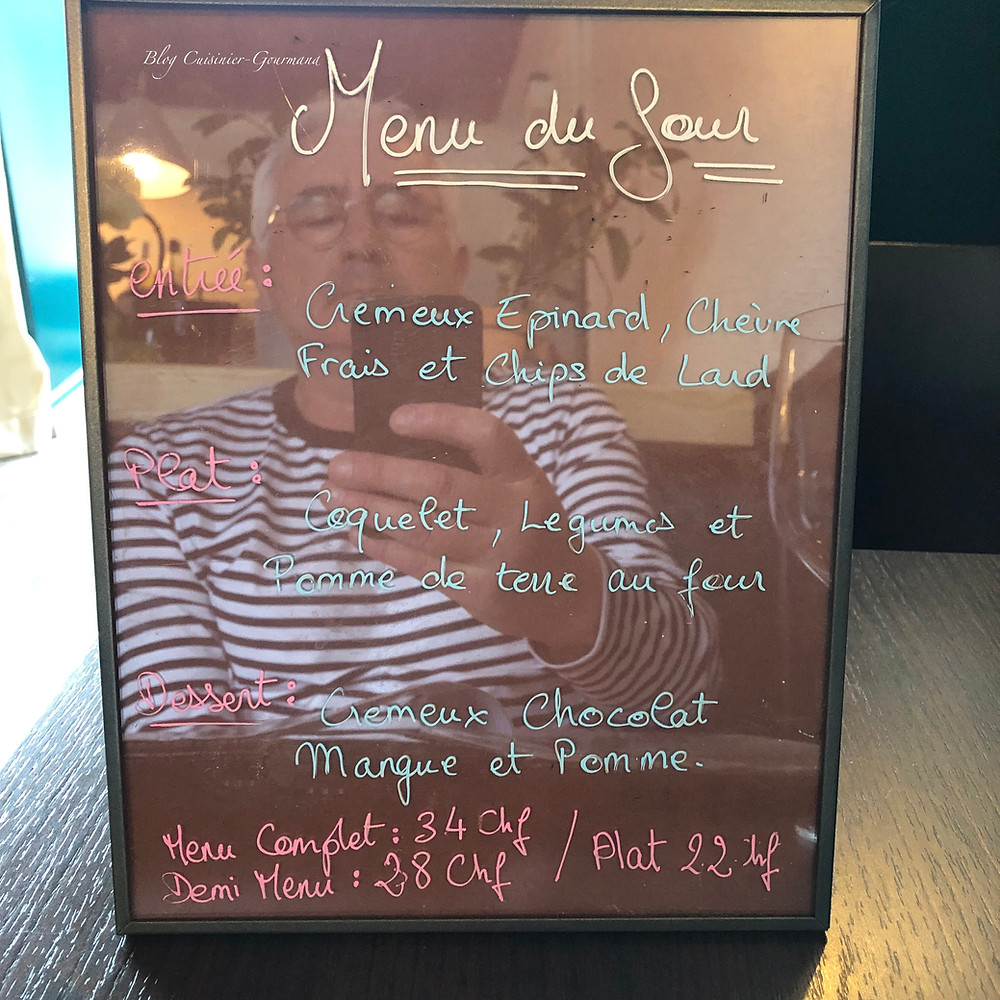 Blog Cuisinier-Gourmand
Menu du Jour
entrée :
Crémeux Epinard, Chèvre
Frais et Chips de Lard
Plat :
Coquelet, Legumes et
Pomme de terre au four
Dessert :
Cremeux Chocolat
Mangue et Pomme.
Menu Complet : 34 Chf / Plat 22 chf
Demi Menu : 28 Chf